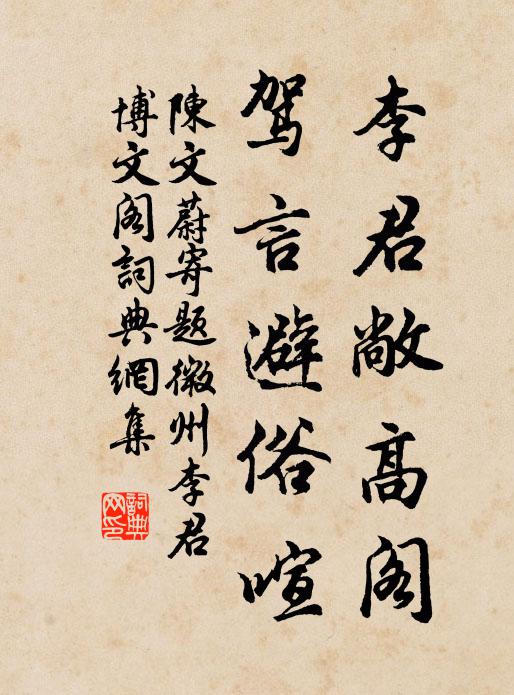 李君敞高阁
驾言避俗喧
陳文蔚寄题徽州李君
博文阁詞典網集
詞典网印